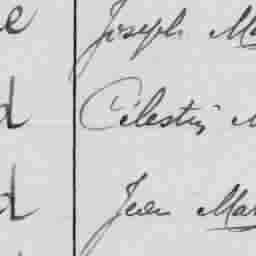 e Joseph Ma
d Célestin M
d Jean Mar